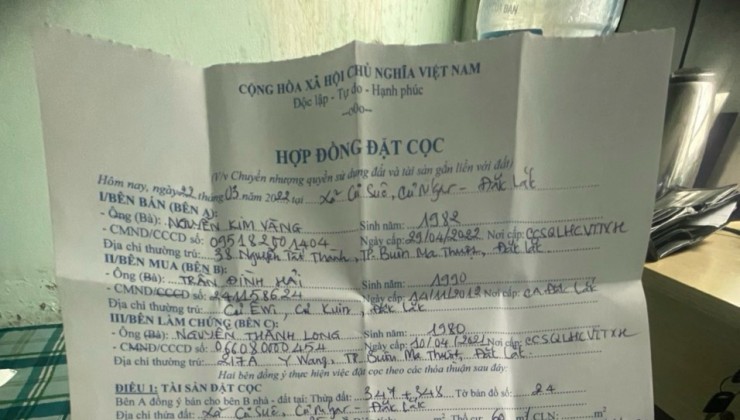 CỘNG HÒA XÃ HỘI CHỦ NGHĨA VIỆT NAM
Độc lập - Tự do - Hạnh phúc
HỢP ĐỒNG ĐẶT CỌC
(V/v Chuyển nhượng quyền sử dụng đất và tài sản gắn liền với đất)
Hôm nay, ngày 22 tháng 05 năm 2022 tại Xã Cư Suê, Cư Mgar - Đắk Lắk
I/BÊN BÁN (BÊN A):
- Ông (Bà): NGUYỄN KIM VÃNG Sinh năm: 1982
- CMND/CCCD số: 095182001404 Ngày cấp: 29/04/2022 Nơi cấp: CCSQLHCVTTXH
Địa chỉ thường trú: 38 Nguyễn Tất Thành, TP. Buôn Ma Thuột, Đắk Lắk
II/BÊN MUA (BÊN B):
- Ông (Bà): TRẦN ĐÌNH HẢI Sinh năm: 1990
- CMND/CCCD số: 241158624 Ngày cấp: 14/11/2012 Nơi cấp: CA. Đắk Lắk
Địa chỉ thường trú: Cư Ewi, Cư Kuin, Đắk Lắk
III/BÊN LÀM CHỨNG (BÊN C):
- Ông (Bà): NGUYỄN THÀNH LONG Sinh năm: 1980
- CMND/CCCD số: 066080000454 Ngày cấp: 10/04/2021 Nơi cấp: CCSQLHCVTTXH
Địa chỉ thường trú: 217A Y Wang, TP. Buôn Ma Thuột, Đắk Lắk
Hai bên đồng ý thực hiện việc đặt cọc theo các thỏa thuận sau đây:
ĐIỀU 1: TÀI SẢN ĐẶT CỌC
Bên A đồng ý bán cho bên B nhà - đất tại: Thửa đất: 347 + 348 Tờ bản đồ số: 24
Địa chỉ thửa đất: Xã Cư Suê, Cư Mgar - Đắk Lắk